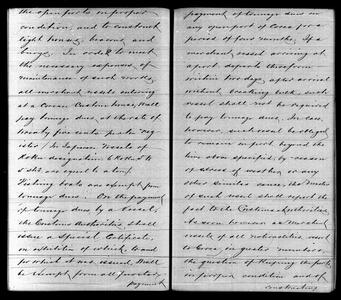 the open ports in proper
condition, and to construct
light houses, beacons, and
buoys. In order to meet
the necessary expenses of
maintenance of such works,
all merchant vessels entering
at a Corean Custom house, shall
pay tonnage dues, at the rate of
twenty five cents per ton reg-
ister. In Japanese Vessels of
Koku designation 6 Koku
are equal to a ton.
Fishing boats are exempt from
tonnage dues. On the payment
of tonnage dues by a Vessel,
the Customs Authorities shall
issue a Special Certificate,
on exhibition of which, to and
for which it was issued, shall
be exempt from all further
payment
payment of tonnage dues in
any open port of Corea for a
period of four months. If a
merchant vessel arriving at
a port departs therefrom
within two days after arrival
without breaking bulk, such
vessel shall not be required
to pay tonnage dues. In case,
however, such vessel be obliged
to remain in port beyond the
time above specified, by reason
of stress of weather, or any
other similar cause, the master
of such vessel shall report the
fact to the Customs Authorities.
As soon as
vessels of all nationalities resort
to Corea, in greater numbers
the question of keeping the ports
in proper condition and of
constructing